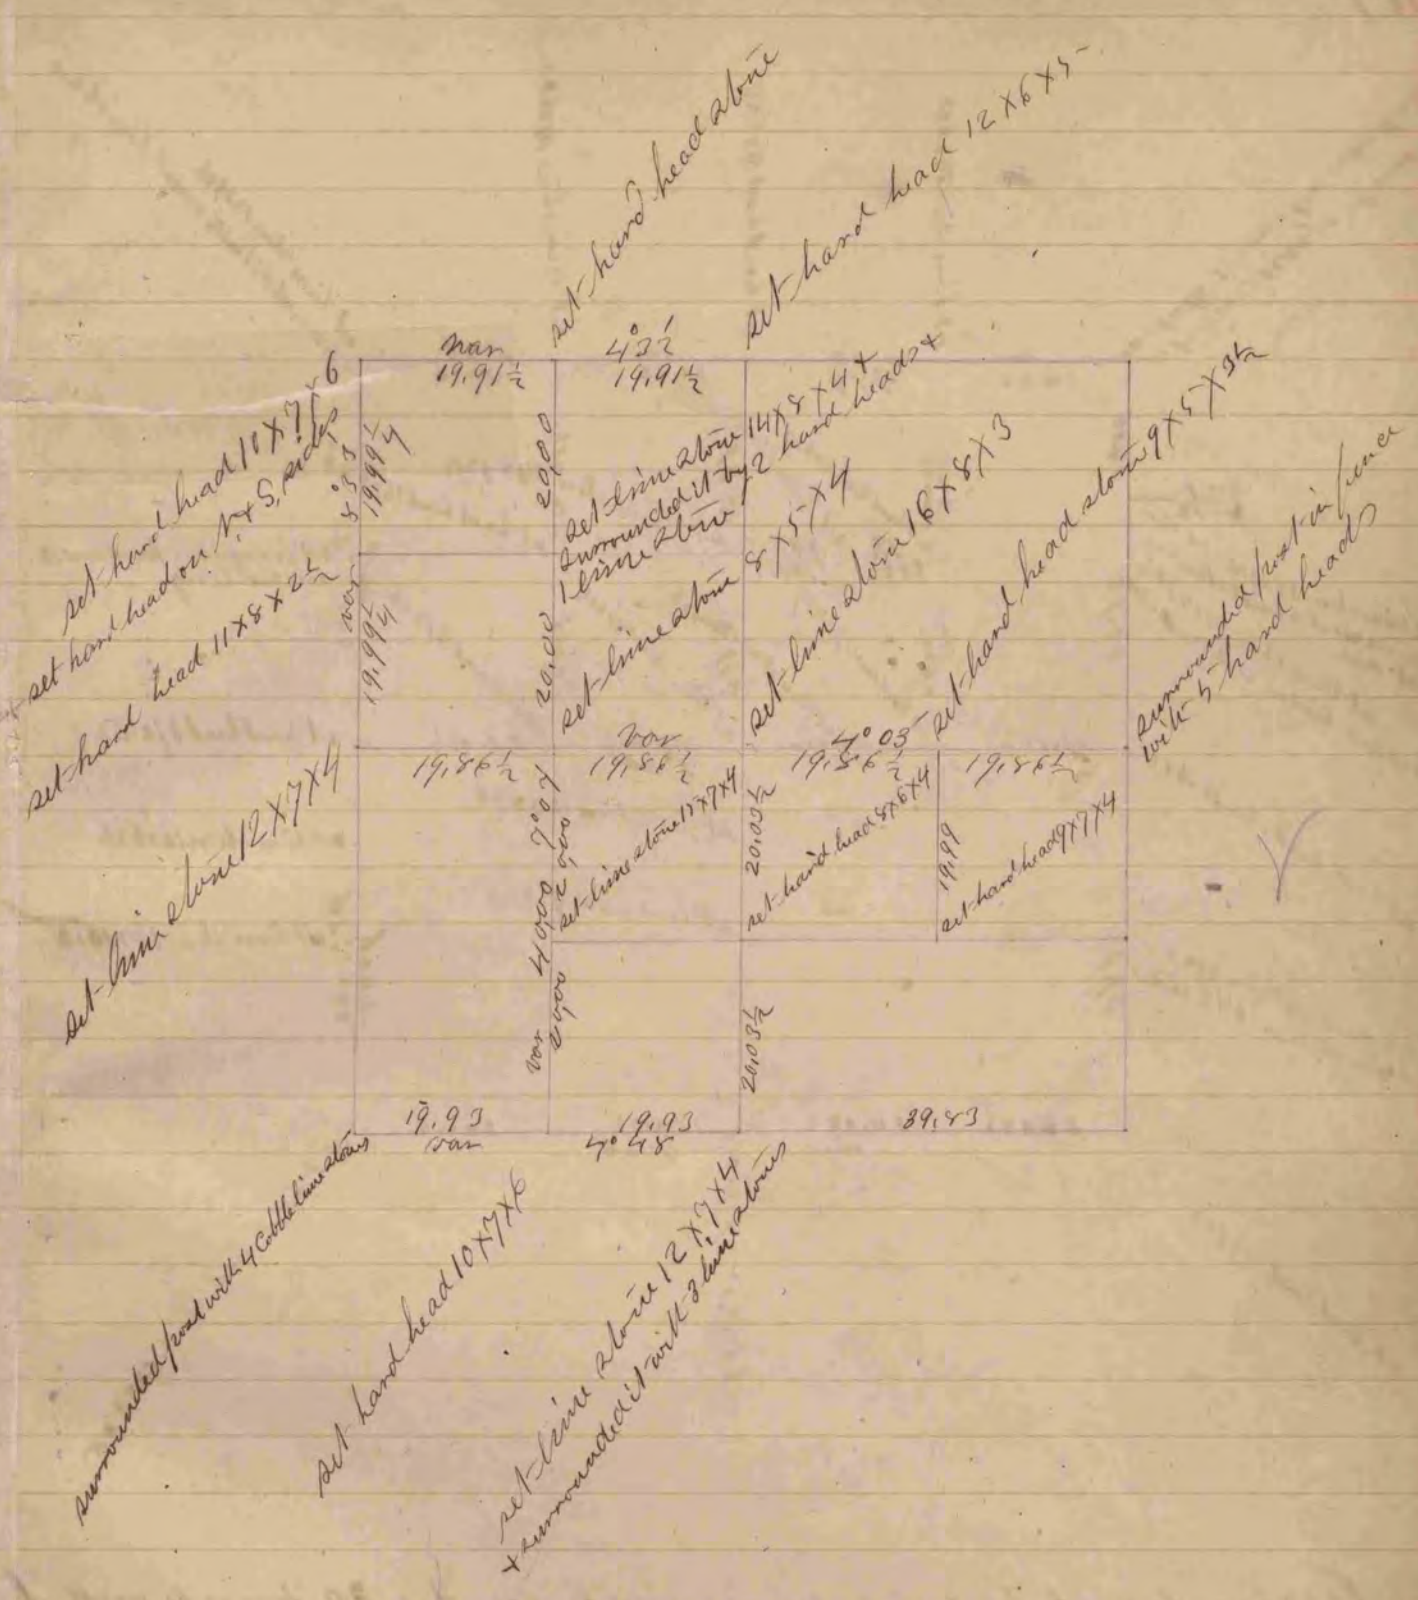 set hard head stone
set hard head 12 x 6 x 5
var 4° 32'
19.91½ 19.91½
set hard head 10 x 7 x 6
+ set hard head on N. & S. sides
set hard head 11 x 8 x 2½
set lime stone 12 x 7 x 4
var 8° 33
19.99¼
19.99¼
20,00
20,00
set lime stone 14 x 8 x 4 &
surrounded it by 2 hard heads &
1 lime stone
set lime stone 8 x 5 x 4
set lime stone 16 x 8 x 3
set hard head stone 9 x 5 x 3½
surrounded post in fence
with 5 hard heads
var 4° 05
19.86½ 19.86½ 19.86½ 19.86½
var 40,00
20,00
20,00
set lime stone 12 x 7 x 4
20.03½
set hard head 8 x 6 x 4
19.99
set hard head 9 x 7 x 4
20.03½
19.93 19.93 39.83
var 4° 48
surrounded post with 4 cobble lime stones
set hard head 10 x 7 x 6
set lime stone 12 x 7 x 4
+ surrounded it with 3 lime stones